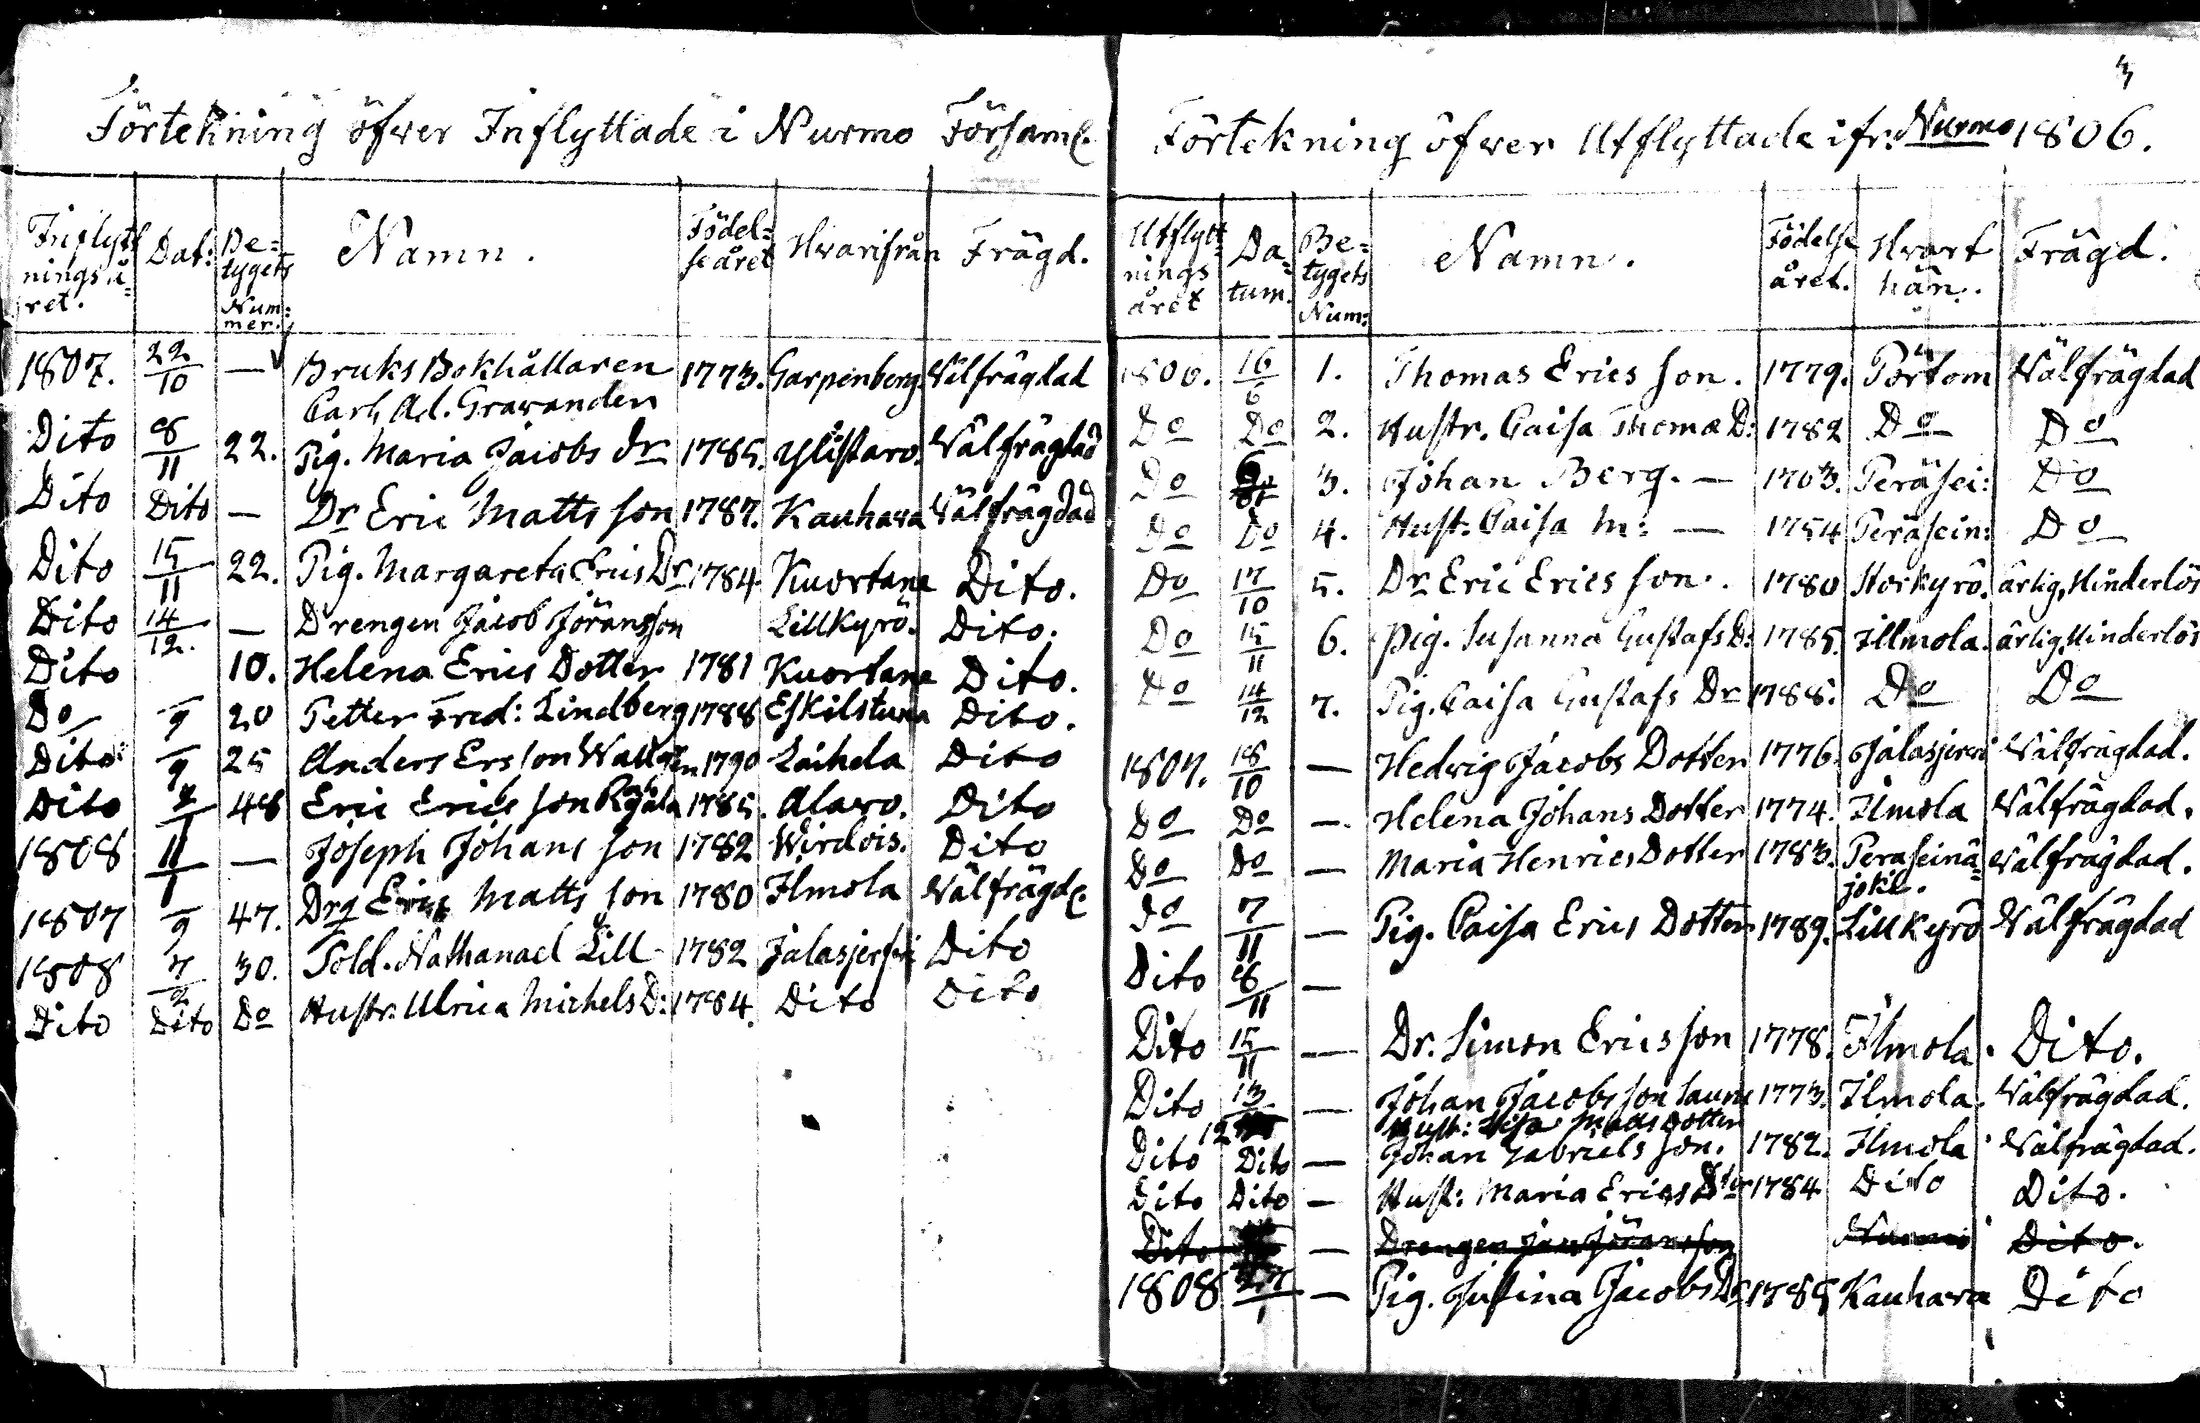 Förtekning öfver Inflyttade i Nurmo Församl.
Inflytt nings å= ret. Dat: Be= tygets Num: mer. Namn. Födel= seåret Hvarifrån Frägd.
1807. 22/10 — Bruks Bokhållaren Carl Ad. Gravanden 1773. Garpenberg Välfrägdad
Dito 8/11 22. Pig. Maria Jacobs Dr 1785. Ylistaro. Välfrägdad
Dito Dito — Dr Eric Matts son 1787. Kauhava Välfrägdad
Dito 15/11 22. Pig. Margareta Erics Dr 1784 Kuortane Dito.
Dito 14/12. — Drengen Jacob Jöransson Lillkyrö. Dito.
Dito 10. Helena Erics Dotter 1781 Kuortane Dito.
Do —/9 20 Petter Fred: Lindberg 1788 Eskilstuna Dito.
Dito —/9 25 Anders Ersson 1790 Laihela Dito
Dito 48 Eric Erics son 1785. Alavo. Dito
1808 11/1 — Joseph Johans son 1782 Wirdois. Dito
1807 —/9 47. Drg Eric Matts son 1780 Ilmola Välfrägd.
1808 7/2 30. Sold. Nathanael Lill 1782 Jalasjerfvi Dito
Dito Dito Do Hustr: Ulrica Michels D: 1784. Dito Dito
3
Förtekning öfver Utflyttade ifr: Nurmo 1806.
Utflytt= nings året Da= tum. Be= tygets Num: Namn. Födelse året. Hvart hän. Frägd.
1806. 16/6 1. Thomas Erics son. 1779. Pörtom Välfrägdad
Do Do 2. Hustr. Caisa Thomæ D: 1782 Do Do
Do 3. Johan Berg. — 1763. Peräsei: Do
Do Do 4. Hust: Caisa M: — 1754 Peräsein: Do
Do 17/10 5. Dr Eric Erics son. 1780 Storkyrö. ärlig, Hinderlös
Do 15/11 6. Pig. Susanna Gustafs D: 1785. Illmola. ärlig, Hinderlös
Do 14/12 7. Pig. Caisa Gustafs Dr 1788. Do Do
1807. 18/10 — Hedvig Jacobs Dotter 1776. Jalasjervi Välfrägdad.
Do Do —. Helena Johans Dotter 1774. Ilmola Välfrägdad.
Do Do — Maria Henrics Dotter 1783. Peraseinä= joki. Välfrägdad.
Do 7/11 — Pig. Caisa Erics Dotter 1789. Lillkyrö Välfrägdad
Dito 8/11 —
Dito 15/11 — Dr. Simon Ericsson 1778. Ilmola. Dito.
Dito 13/12 — Johan Jacobsson 1773. Ilmola. Välfrägdad.
Hust: Lisa Matts Dotter
Dito Dito — Johan Gabriels son. 1782. Ilmola Välfrägdad.
Dito Dito — Hust: Maria Erics Dter 1784 Dito Dito.
Dito — Drengen Jac Jöransson Nurmo Dito.
1808 27/1 — Pig. Justina Jacobs Dr 1789 Kauhava Dito